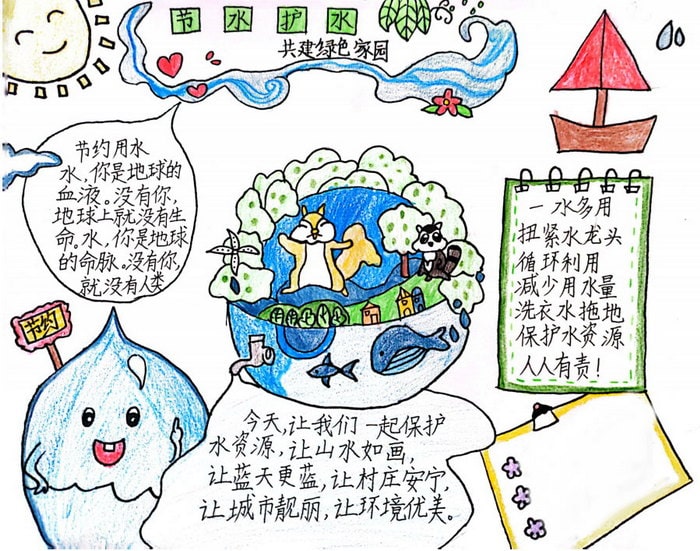 节水护水
共建绿色家园
节约用水
水,你是地球的
血液。没有你,
地球上就没有生
命。水,你是地球
的命脉。没有你,
就没有人类
节约
一水多用
扭紧水龙头
循环利用
减少用水量
洗衣水拖地
保护水资源
人人有责!
今天,让我们一起保护
水资源,让山水如画,
让蓝天更蓝,让村庄安宁,
让城市靓丽,让环境优美。